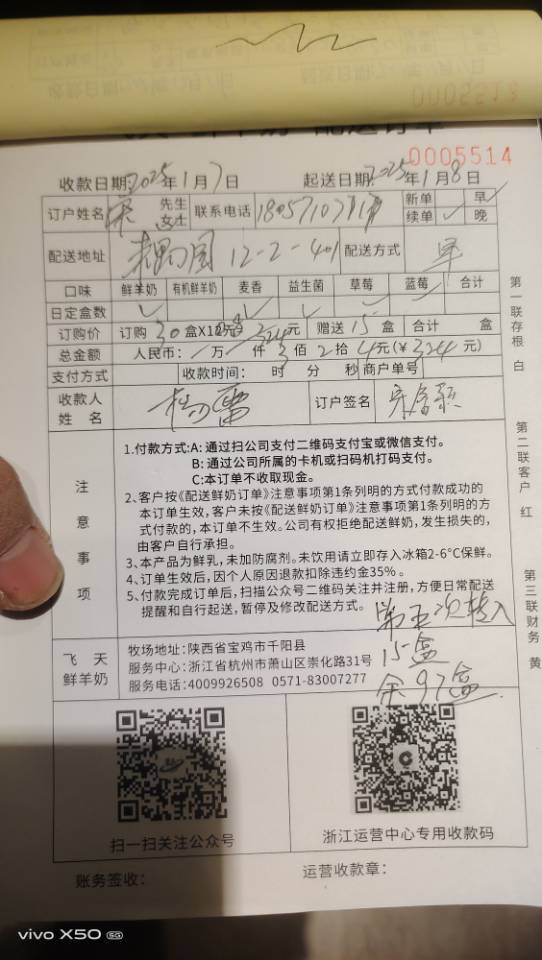 0002213
配送订单
0005514
收款日期:2025年1月7日 起送日期:2025年1月8日
订户姓名 宋 先生 女士 联系电话 新单 早
续单 ✓ 晚
配送地址 12-2-401 配送方式
口味 鲜羊奶 有机鲜羊奶 麦香 益生菌 草莓 蓝莓 合计
日定盒数 ✓ ✓ ✓
订购价 订购 30 盒X 元 324元 赠送 15 盒 合计 盒
总金额 人民币: 万 仟 3佰 2拾 4元(¥ 324 元)
支付方式 收款时间: 时 分 秒 商户单号
收款人姓名 杨雷 订户签名
注意事项
1.付款方式:A: 通过扫公司支付二维码支付宝或微信支付。
B: 通过公司所属的卡机或扫码机打码支付。
C:本订单不收取现金。
2、客户按《配送鲜奶订单》注意事项第1条列明的方式付款成功的
本订单生效,客户未按《配送鲜奶订单》注意事项第1条列明的方
式付款的,本订单不生效。公司有权拒绝配送鲜奶,发生损失的,
由客户自行承担。
3、本产品为鲜乳,未加防腐剂。未饮用请立即存入冰箱2-6°C保鲜。
4、订单生效后,因个人原因退款扣除违约金35%。
5、付款完成订单后,扫描公众号二维码关注并注册,方便日常配送
提醒和自行起送,暂停及修改配送方式。
第五次转入
15盒
余97盒
飞天
鲜羊奶
牧场地址:陕西省宝鸡市千阳县
服务中心:浙江省杭州市萧山区崇化路31号
服务电话:4009926508 0571-83007277
扫一扫关注公众号
浙江运营中心专用收款码
账务签收:
运营收款章:
第一联存根 白
第二联客户 红
第三联财务 黄
vivo X50 5G